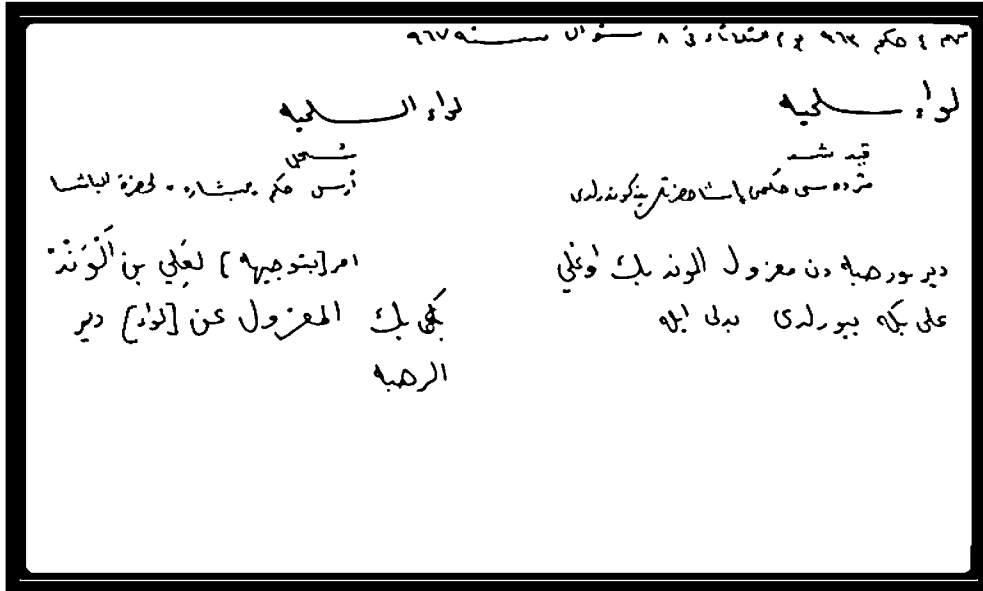 مهم ٤ حكم ٩٦٣ يوم الثلاثاء في ٨ شوال سنه ٩٦٧
لواء سلميه
قيد شد
مژده سى حكمى پاشا حضرتلرينه كوندرلدى
دير ورحبه دن معزول الوند بك اوغلي
على بكه بيورلدى بدلى ايله
لواء السلميه
سُجل
أرسل حكم بشاره لحضرة الباشا
امر [بتوجيه] لعَلِي بن اَلْوَنْدْ
بك المعزول عن [لواء] دير
الرحبه